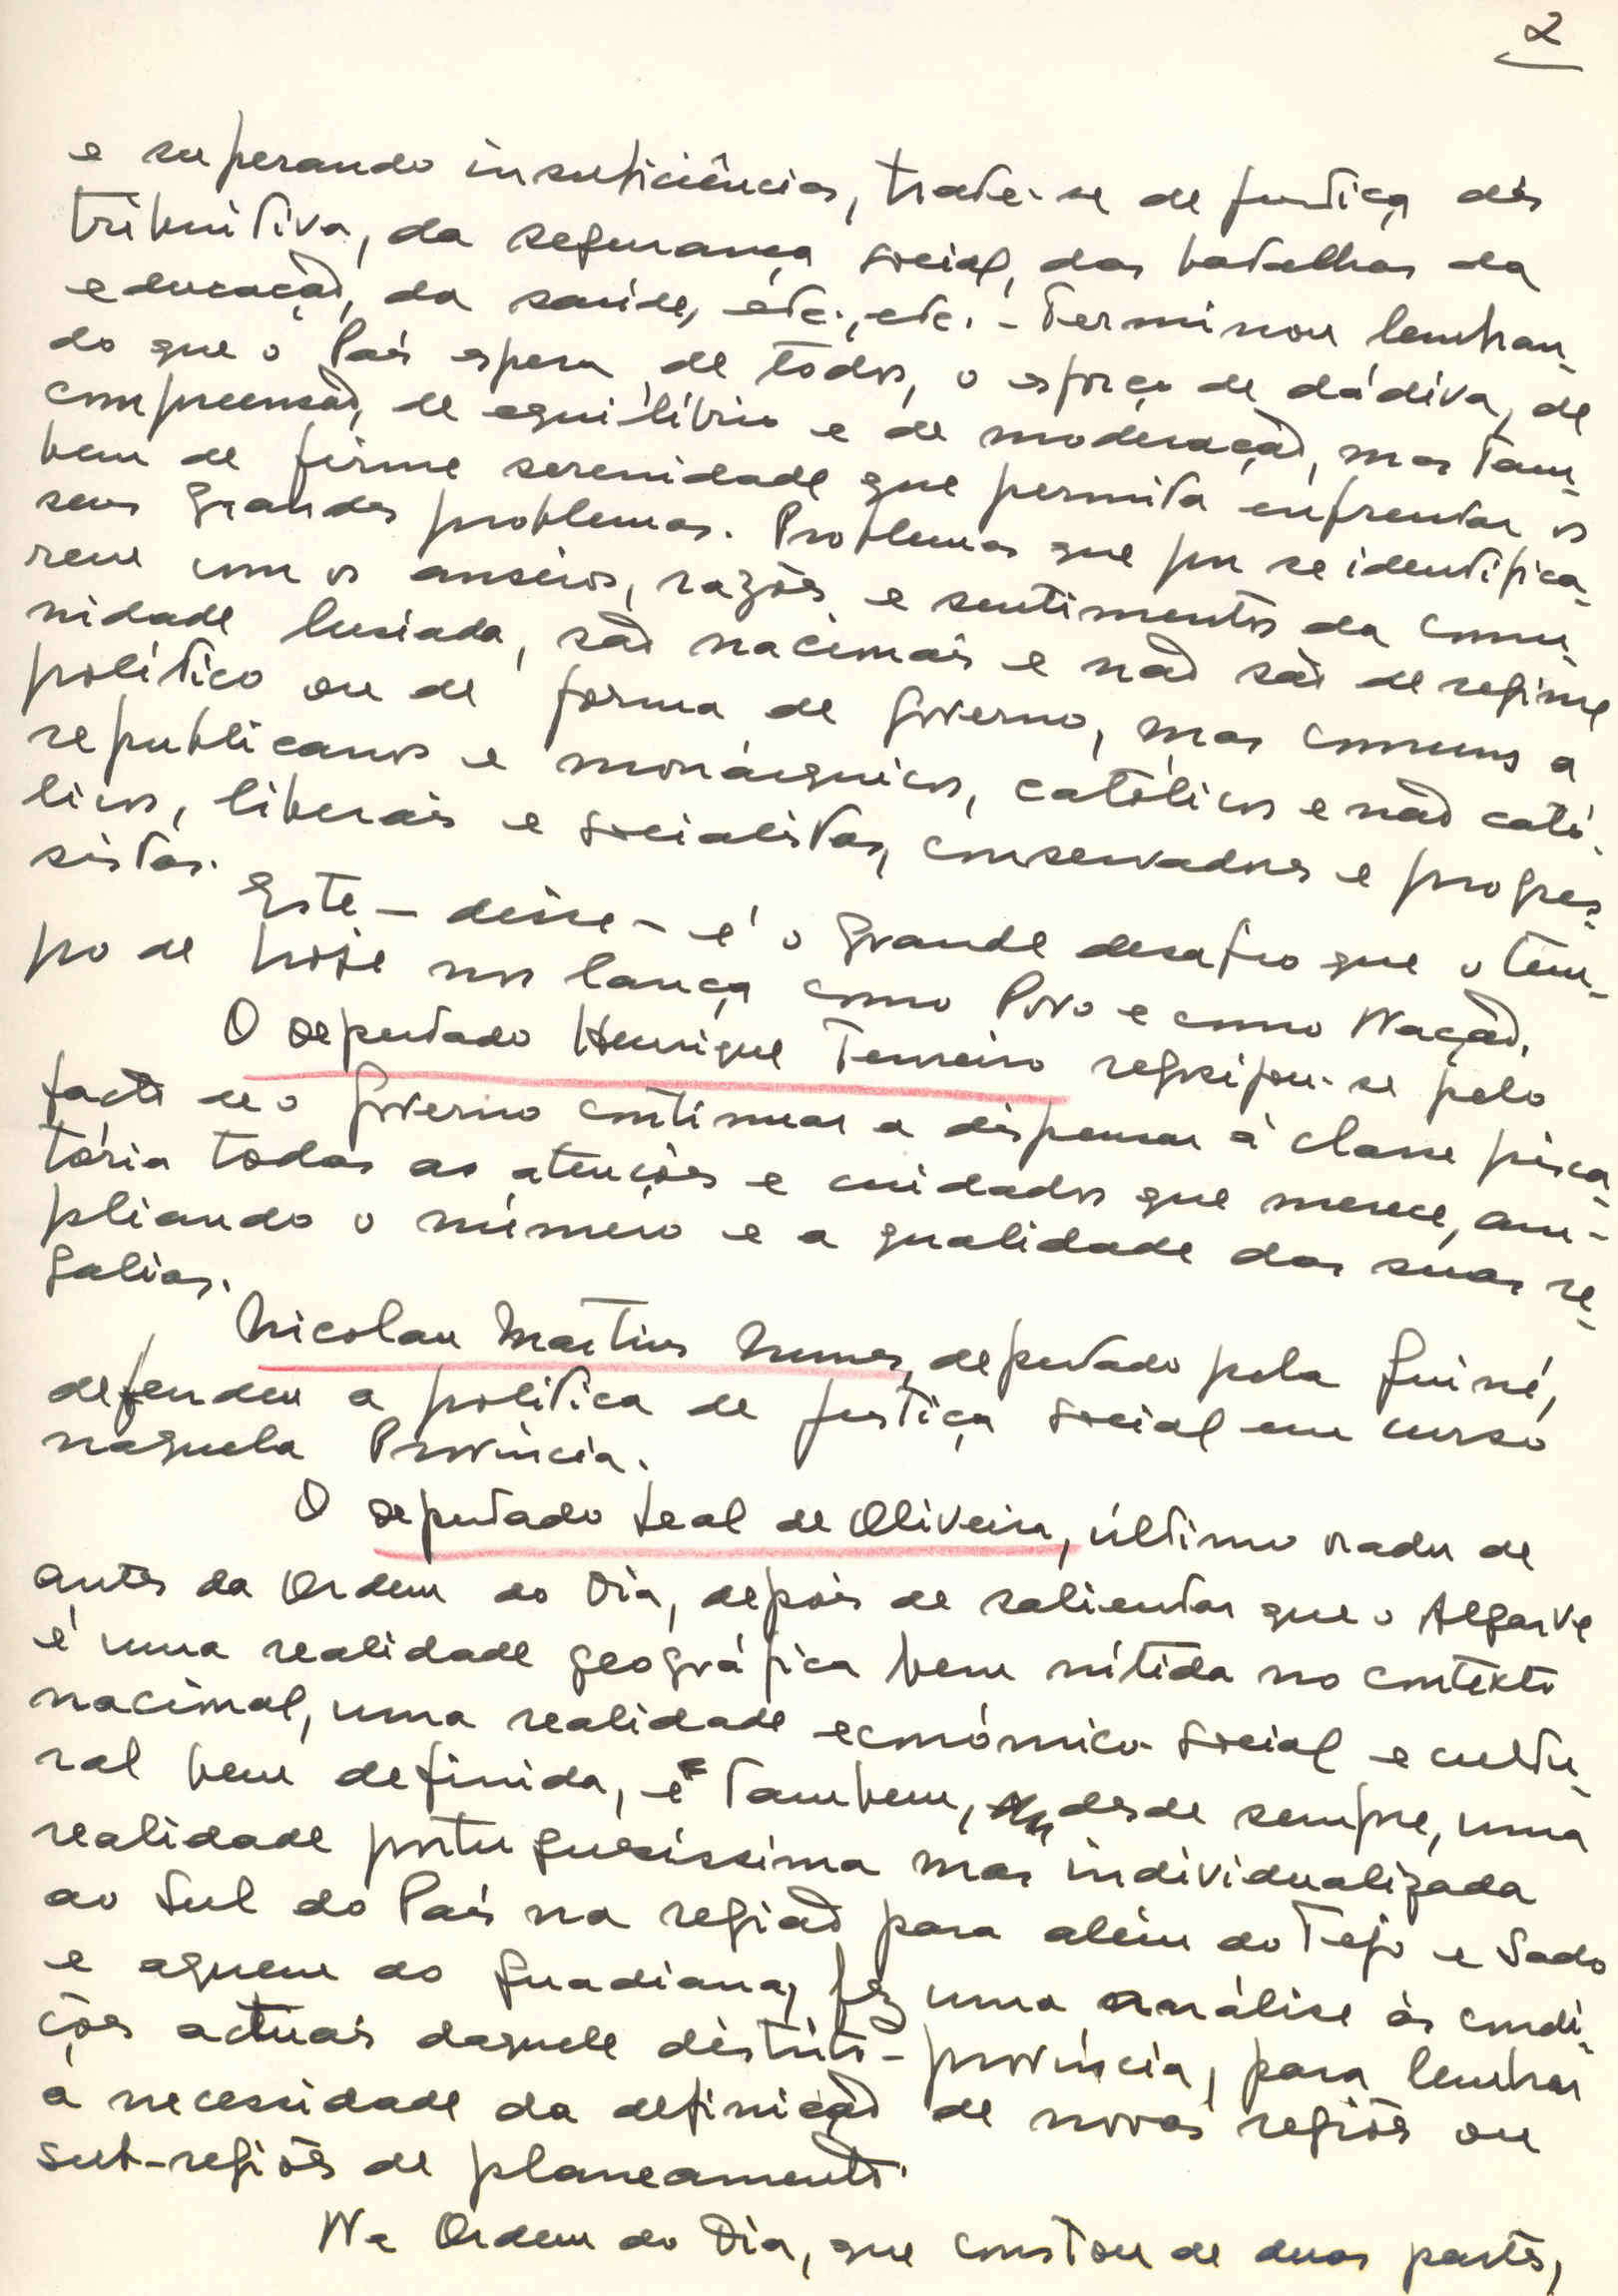 2
e superando insuficiências, trate-se de justiça dis
tributiva, da segurança social, das batalhas da
educação, da saúde, etc., etc. - Terminou lembran-
do que o País espera de todos, o esforço de dádiva, de
compreensão, de equilíbrio e de moderação, mas tam-
bem de firme serenidade que permita enfrentar os
seus grandes problemas. Problemas que por se identifica-
rem com os anseios, razões e sentimentos da comu-
nidade lusíada, são nacionais e não são de regime
político ou de forma de Governo, mas comuns a
republicanos e monárquicos, católicos e não cató-
licos, liberais e socialistas, conservadores e progres-
sistas.
Este - disse - é o grande desafio que o tem-
po de hoje nos lança como Povo e como Nação.
O deputado Henrique Tenreiro regosijou-se pelo
facto de o Governo continuar a dispensar à classe pisca-
tória todas as atenções e cuidados que merece, am-
pliando o número e a qualidade das suas re-
galias.
Nicolau Martins Nunes, deputado pela Guiné,
defendeu a política de justiça social em curso
naquela Província.
O deputado Leal de Oliveira, último orador de
antes da Ordem do Dia, depois de salientar que o Algarve
é uma realidade geográfica bem nítida no contexto
nacional, uma realidade económico-social e cultu-
ral bem definida, e tambem, desde sempre, uma
realidade portuguesíssima mas individualizada
ao Sul do País na região para além do Tejo e Sado
e aquem do Guadiana, fez uma análise às condi-
ções actuais daquele distrito-província, para lembrar
a necessidade da definição de novas regiões ou
sub-regiões de planeamento.
Na Ordem do Dia, que constou de duas partes,